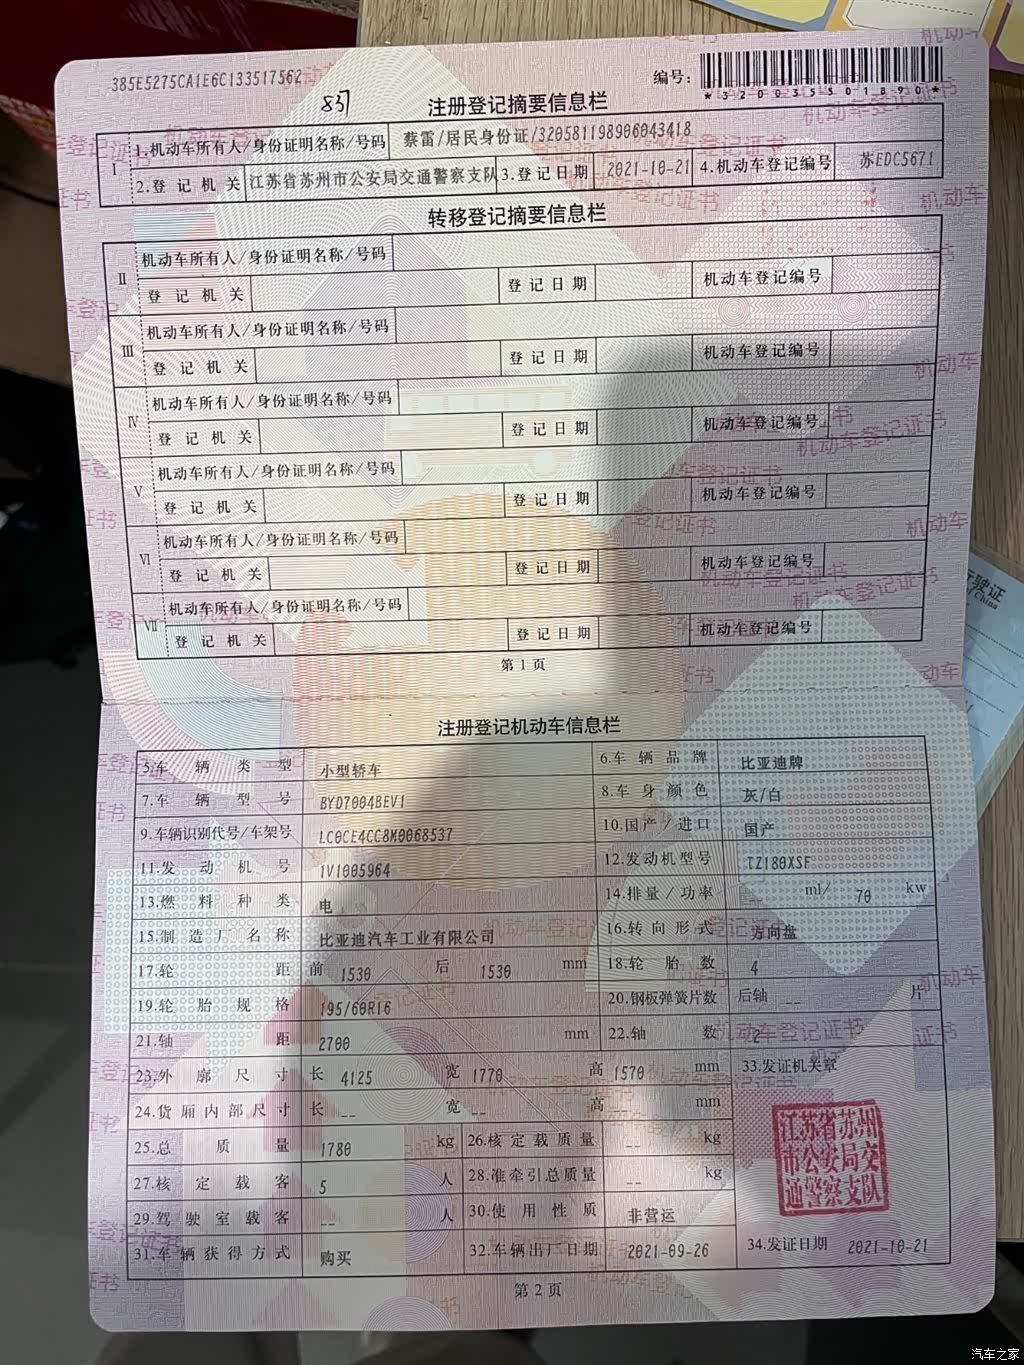 385E5275CA1E6C133517562
编号：
*320035501890*
注册登记摘要信息栏
Ⅰ 1.机动车所有人/身份证明名称/号码 蔡雷/居民身份证/320581198906043418
2.登记机关 江苏省苏州市公安局交通警察支队 3.登记日期 2021-10-21 4.机动车登记编号 苏EDC5671
转移登记摘要信息栏
Ⅱ 机动车所有人/身份证明名称/号码
登记机关 登记日期 机动车登记编号
Ⅲ 机动车所有人/身份证明名称/号码
登记机关 登记日期 机动车登记编号
Ⅳ 机动车所有人/身份证明名称/号码
登记机关 登记日期 机动车登记编号
Ⅴ 机动车所有人/身份证明名称/号码
登记机关 登记日期 机动车登记编号
Ⅵ 机动车所有人/身份证明名称/号码
登记机关 登记日期 机动车登记编号
Ⅶ 机动车所有人/身份证明名称/号码
登记机关 登记日期 机动车登记编号
第1页
注册登记机动车信息栏
5.车辆类型 小型轿车 6.车辆品牌 比亚迪牌
7.车辆型号 BYD7004BEV1 8.车身颜色 灰/白
9.车辆识别代号/车架号 LC0CE4CC8M0068537 10.国产/进口 国产
11.发动机号 1V1005964 12.发动机型号 TZ180XSF
13.燃料种类 电 14.排量/功率 ml/ 70 kw
15.制造厂名称 比亚迪汽车工业有限公司 16.转向形式 方向盘
17.轮距 前 1530 后 1530 mm 18.轮胎数 4
19.轮胎规格 195/60R16 20.钢板弹簧片数 后轴 -- 片
21.轴距 2700 mm 22.轴数 2
23.外廓尺寸 长 4125 宽 1770 高 1570 mm 33.发证机关章
24.货厢内部尺寸 长 -- 宽 -- 高 -- mm
25.总质量 1780 kg 26.核定载质量 -- kg
27.核定载客 5 人 28.准牵引总质量 -- kg
29.驾驶室载客 -- 人 30.使用性质 非营运
31.车辆获得方式 购买 32.车辆出厂日期 2021-09-26 34.发证日期 2021-10-21
江苏省苏州
市公安局交
通警察支队
第2页
行驶证
of China
汽车之家